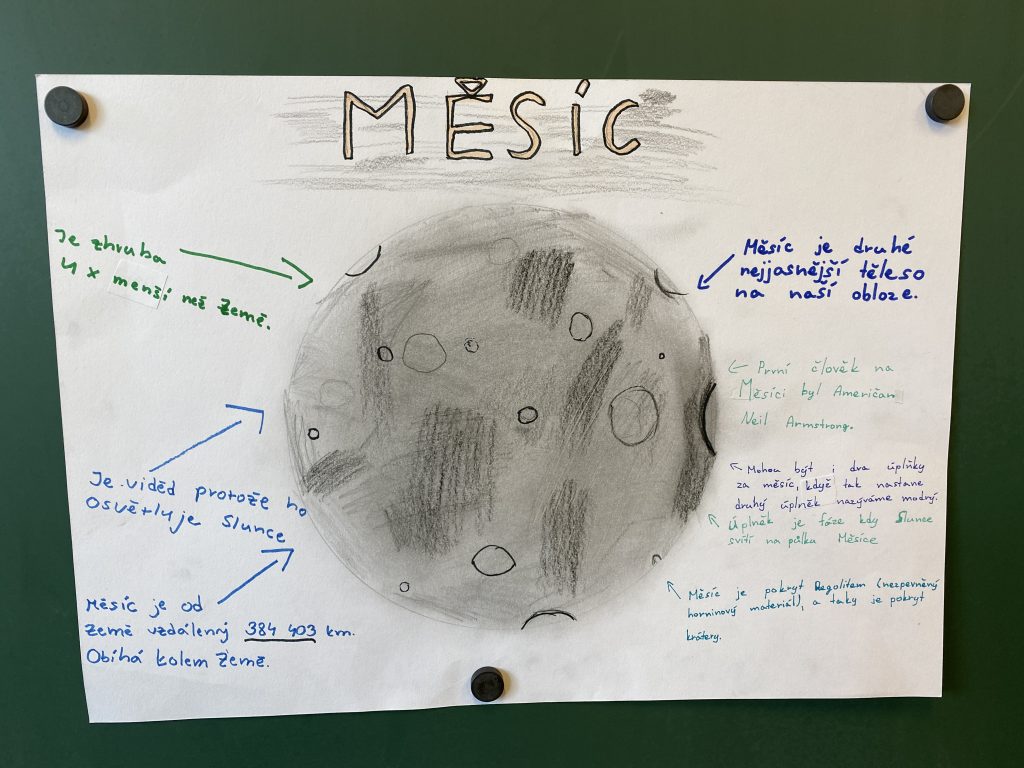 MĚSÍC
Je zhruba
4 x menší než Země.
Je viděd protože ho
osvětluje slunce
Měsíc je od
Země vzdálenný 384 403 km.
Obíhá kolem Země.
Měsíc je druhé
nejjasnější těleso
na naší obloze.
První člověk na
Měsíci byl Američan
Neil Armstrong.
Mohou být i dva úplňky
za měsíc, když tak nastane
druhý úplněk nazýváme modrý.
Úplněk je fáze kdy Slunce
svítí na půlka Měsíce
Měsíc je pokryt Regolitem (nezpevněný
horninový materiál), a taky je pokryt
krátery.